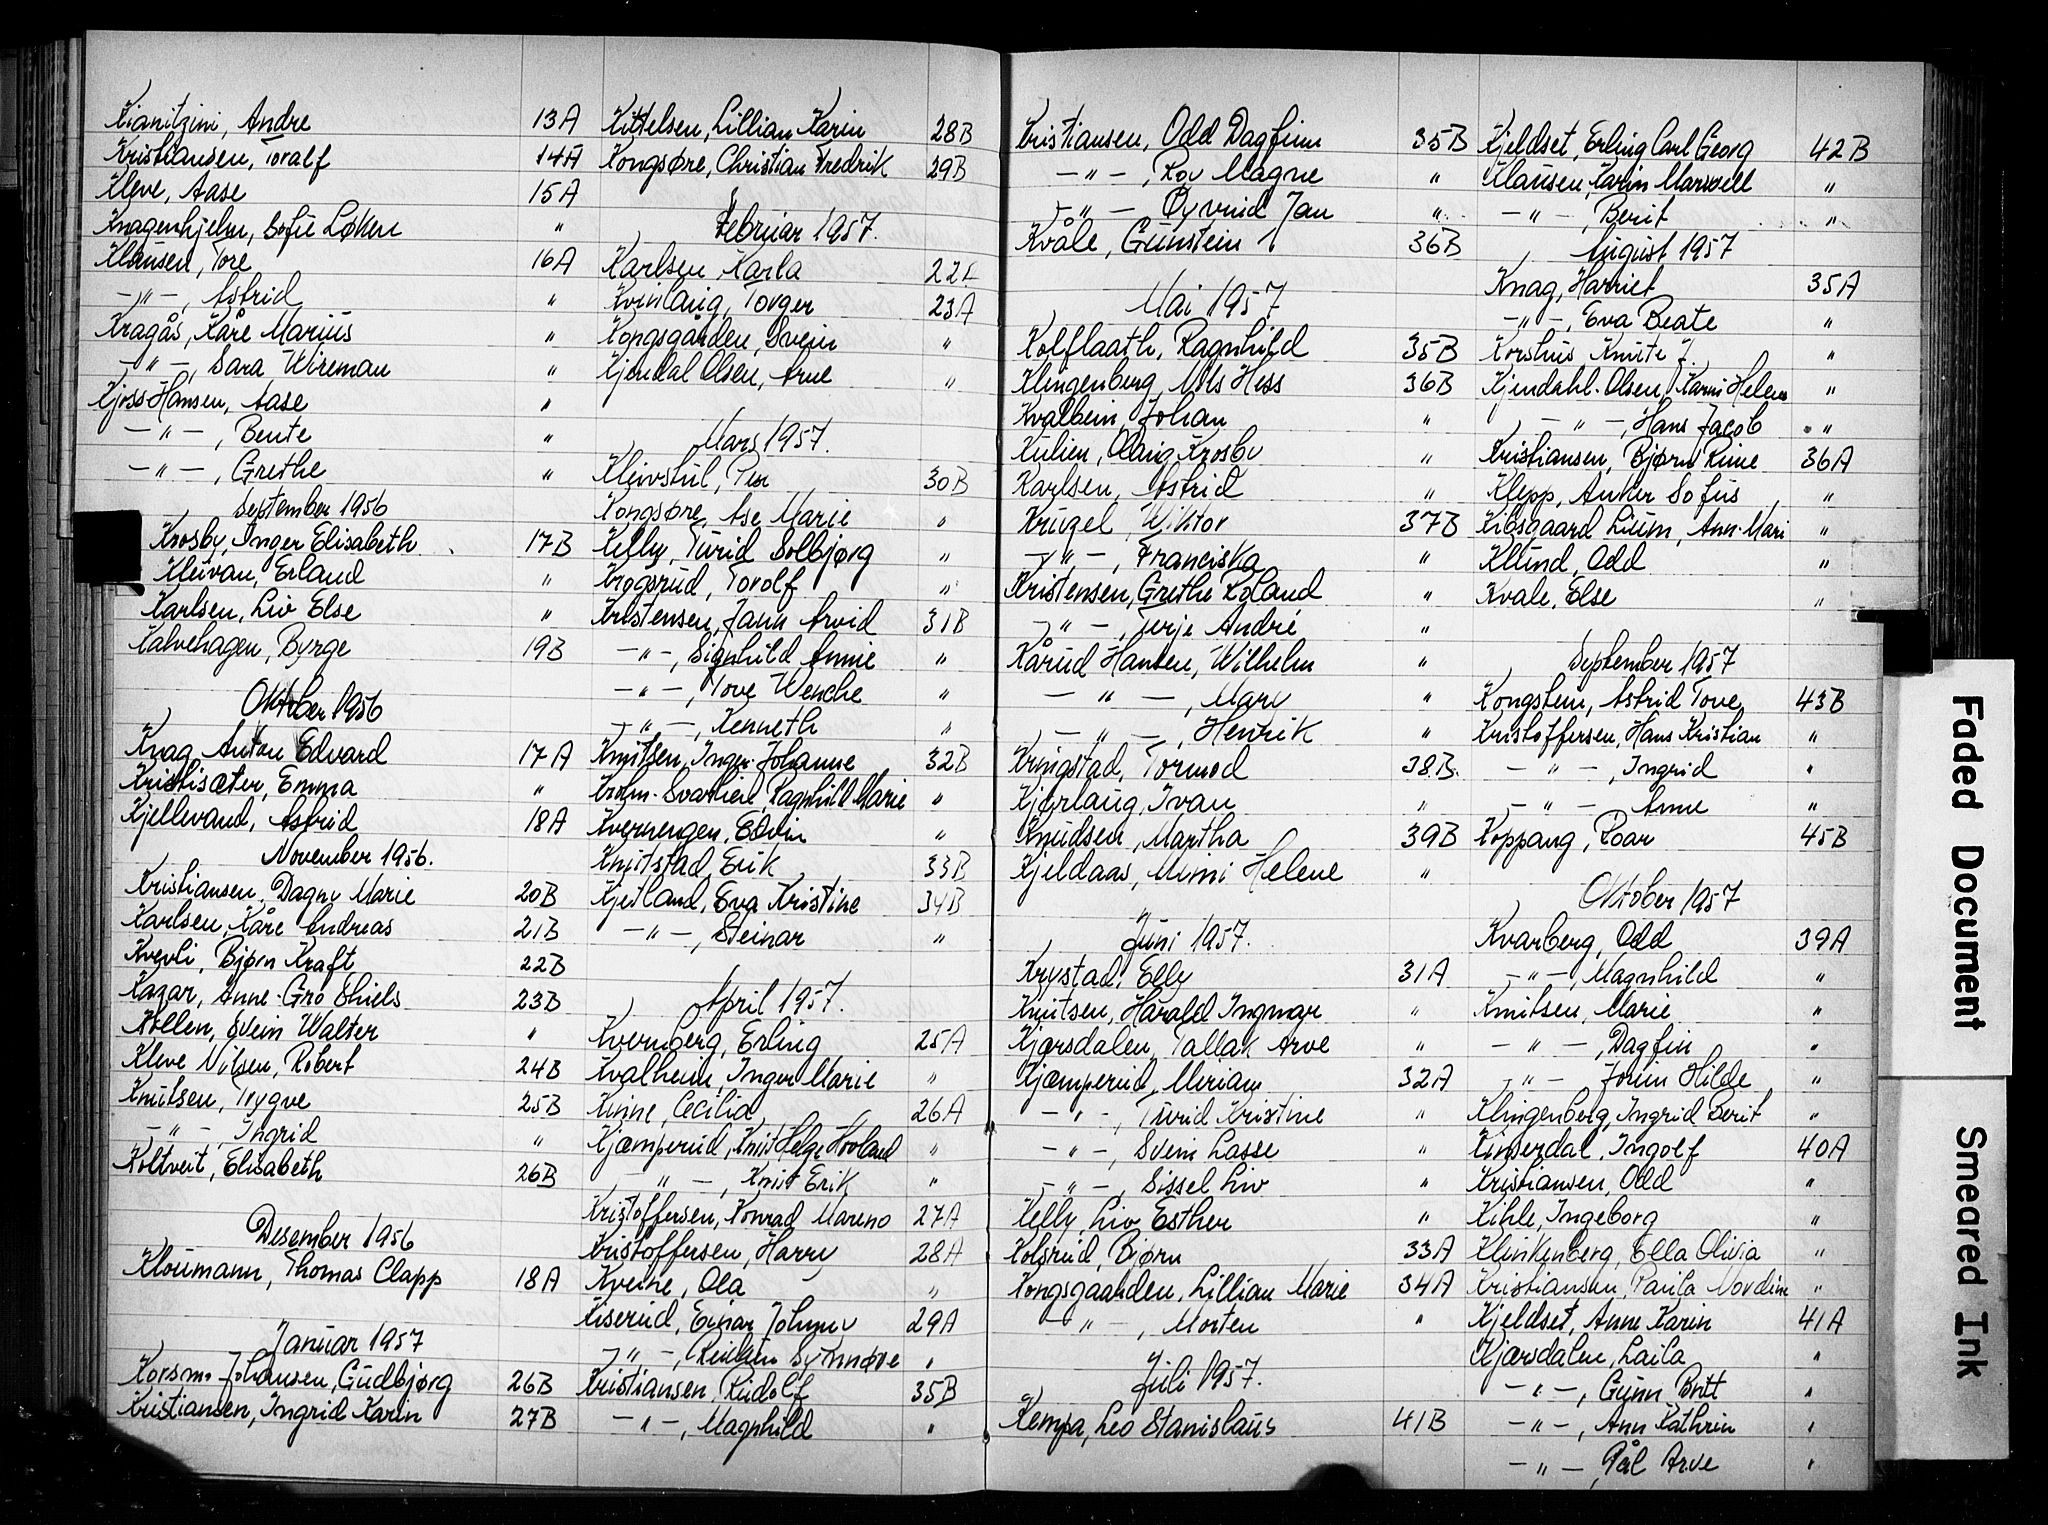 Kianitzini, Andre 13A
Kristiansen, Toralf 14A
Kleve, Aase 15A
Knagenhjelm, Sofie Løken "
Klausen, Tore 16A
-"-, Astrid "
Kragås, Kåre Marius "
-"-, Sara Wireman "
Kjoss Hansen, Aase "
-"-, Bente "
-"-, Grethe "
September 1956
Krosby, Inger Elisabeth 17B
Kleivan, Erland "
Karlsen, Liv Else "
Kalvehagen, Byrge 19B
Oktober 1956
Knag, Anton Edvard 17A
Kristisæter, Emma "
Kjellevand, Astrid 18A
November 1956.
Kristiansen, Dagny Marie 20B
Karlsen, Kåre Andreas 21B
Kverli, Bjørn Kraft 22B
Kazar, Anne-Gro Shiels 23B
Kollen, Svein Walter "
Kleve Nilsen, Robert 24B
Knutsen, Trygve 25B
-"-, Ingrid "
Koltveit, Elisabeth 26B
Desember 1956
Kloumann, Thomas Clapp 18A
Januar 1957
Korsmo Johansen, Gudbjørg 26B
Kristiansen, Ingrid Karin 27B
Kittelsen, Lillian Karin 28B
Kongsøre, Christian Fredrik 29B
Februar 1957.
Karlsen, Karla 22A
Kvinlaug, Torger 23A
Kongsgården, Svein "
Kjendal Olsen, Arne "
Mars 1957.
Kleivstul, Per 30B
Kongsøre, Ase Marie "
Kelly, Turid Solbjørg "
Krogsrud, Torolf "
Kristensen, Jann Arvid 31B
-"-, Signhild Annie "
-"-, Tove Wenche "
-"-, Kenneth "
Knutsen, Inger Johanne 32B
Krohn-Svartlien, Ragnhild Marie "
Kvernengen, Edvin "
Knutstad, Erik 33B
Kjetland, Eva Kristine 34B
-"-, Steinar "
April 1957.
Kvernberg, Erling 25A
Kvalheim, Inger Marie "
Kinne, Cecilia 26A
Kjæmperud, Knut Helge Hovland "
-"-, Knut Erik "
Kristoffersen, Konrad Mareno 27A
Kristoffersen, Harry 28A
Kverne, Ola "
Kiserud, Einar Johnny 29A
-"-, Reidun Synnøve "
Kristiansen, Rudolf 35B
-"-, Magnhild "
Kristiansen, Odd Dagfinn 35B
-"-, Roy Magne "
-"-, Øyvind Jan "
Kvåle, Gunstein 36B
Mai 1957
Kolflaath, Ragnhild 35B
Klingenberg, Nils Hess 36B
Kvalbein, Johan "
Kulien, Olaug Krosby "
Karlsen, Astrid "
Krugel, Wiktor 37B
-"-, Franciska "
Kristensen, Grethe Roland "
-"-, Terje André "
Kårud Hansen, Wilhelm "
-"-, Mary "
-"-, Henrik "
Kringstad, Tormod 38B.
Kjørlaug, Ivan "
Knudsen, Martha 39B
Kjeldaas, Mimi Helene "
Juni 1957.
Krystad, Elly 31A
Knutsen, Harald Ingmar "
Kjærsdalen, Tallak Arve "
Kjæmperud, Miriam 32A
-"-, Turid Kristine "
-"-, Svein Lasse "
-"-, Sissel Liv "
Kelly, Liv Esther "
Kolsrud, Bjørn 33A
Kongsgaarden, Lillian Marie 34A
-"-, Morten "
Juli 1957.
Kempa, Leo Stanislaus 41B
Kjeldset, Erling Carl Georg 42B
Klausen, Karin Marwell "
-"-, Berit "
August 1957
Knag, Harriet 35A
-"-, Eva Beate "
Korshus Knute J. "
Kjendahl-Olsen, Karin Helene "
-"-, Hans Jacob "
Kristiansen, Bjørn Rune 36A
Klepp, Anker Sofus "
Kibsgaard Lium, Ann-Mari "
Klund, Odd "
Kvale, Else "
September 1957
Kongstein, Astrid Tove 43B
Kristoffersen, Hans Kristian "
-"-, Ingrid "
-"- Anne "
Koppang, Roar 45B
Oktober 1957
Kvarberg, Odd 39A
-"-, Magnhild "
Knutsen, Marie "
-"-, Dagfin "
-"- Jorun Hilde "
Klingenberg, Ingrid Berit "
Kinserdal, Ingolf 40A
Kristiansen, Odd "
Kihle, Ingeborg "
Klinkenberg, Ella Olivia "
Kristiansen, Paula Nordine "
Kjeldset, Anne Karin 41A
Kjærsdalen, Laila "
-"-, Gunn Britt "
-"-, Ann Kathrin "
-"-, Pål Arve "
Faded Document
Smeared Ink